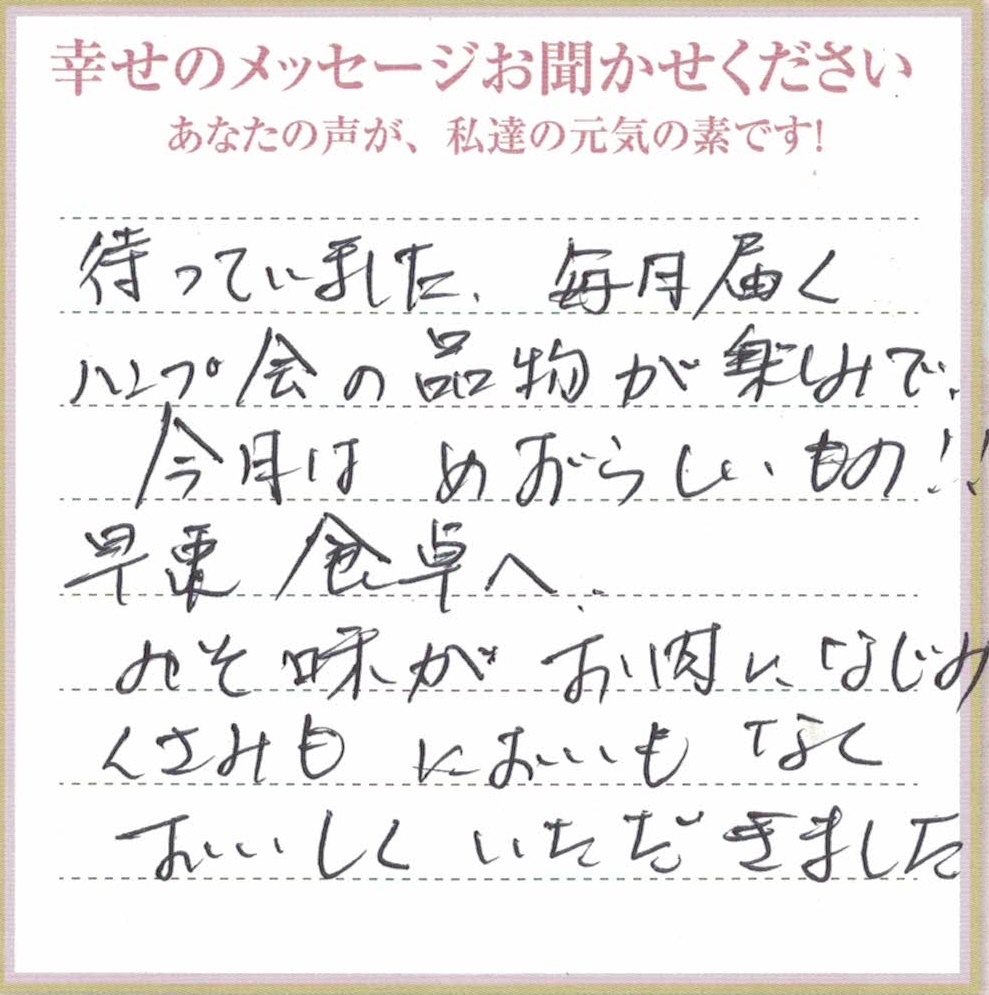 幸せのメッセージお聞かせください
あなたの声が、私達の元気の素です!
待っていました、毎月届く
ハンプ会の品物が楽しみで、
今月は めずらしいもの!!
早速 食卓へ‥
みそ味が お肉に なじみ
くさみも においも なく
おいしく いただきました